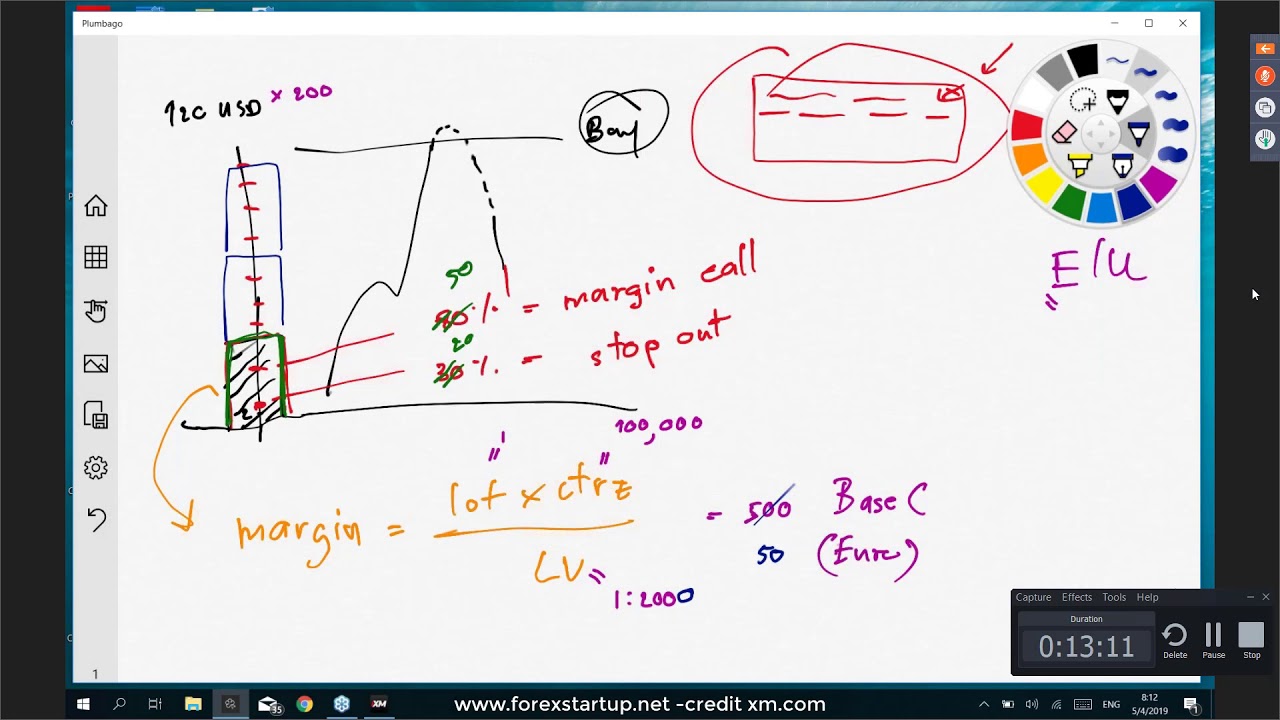 Plumbago
× 200
50
80% = margin call
20
30% = stop out
E/U
100,000
1
margin = lot x ctrz
LV
= 500 Base C
50 (Euro)
1:2000
Capture Effects Tools Help
Duration
0:13:11
Delete Pause Stop
1
35
XM
www.forexstartup.net -credit xm.com
ENG
8:12
5/4/2019
1